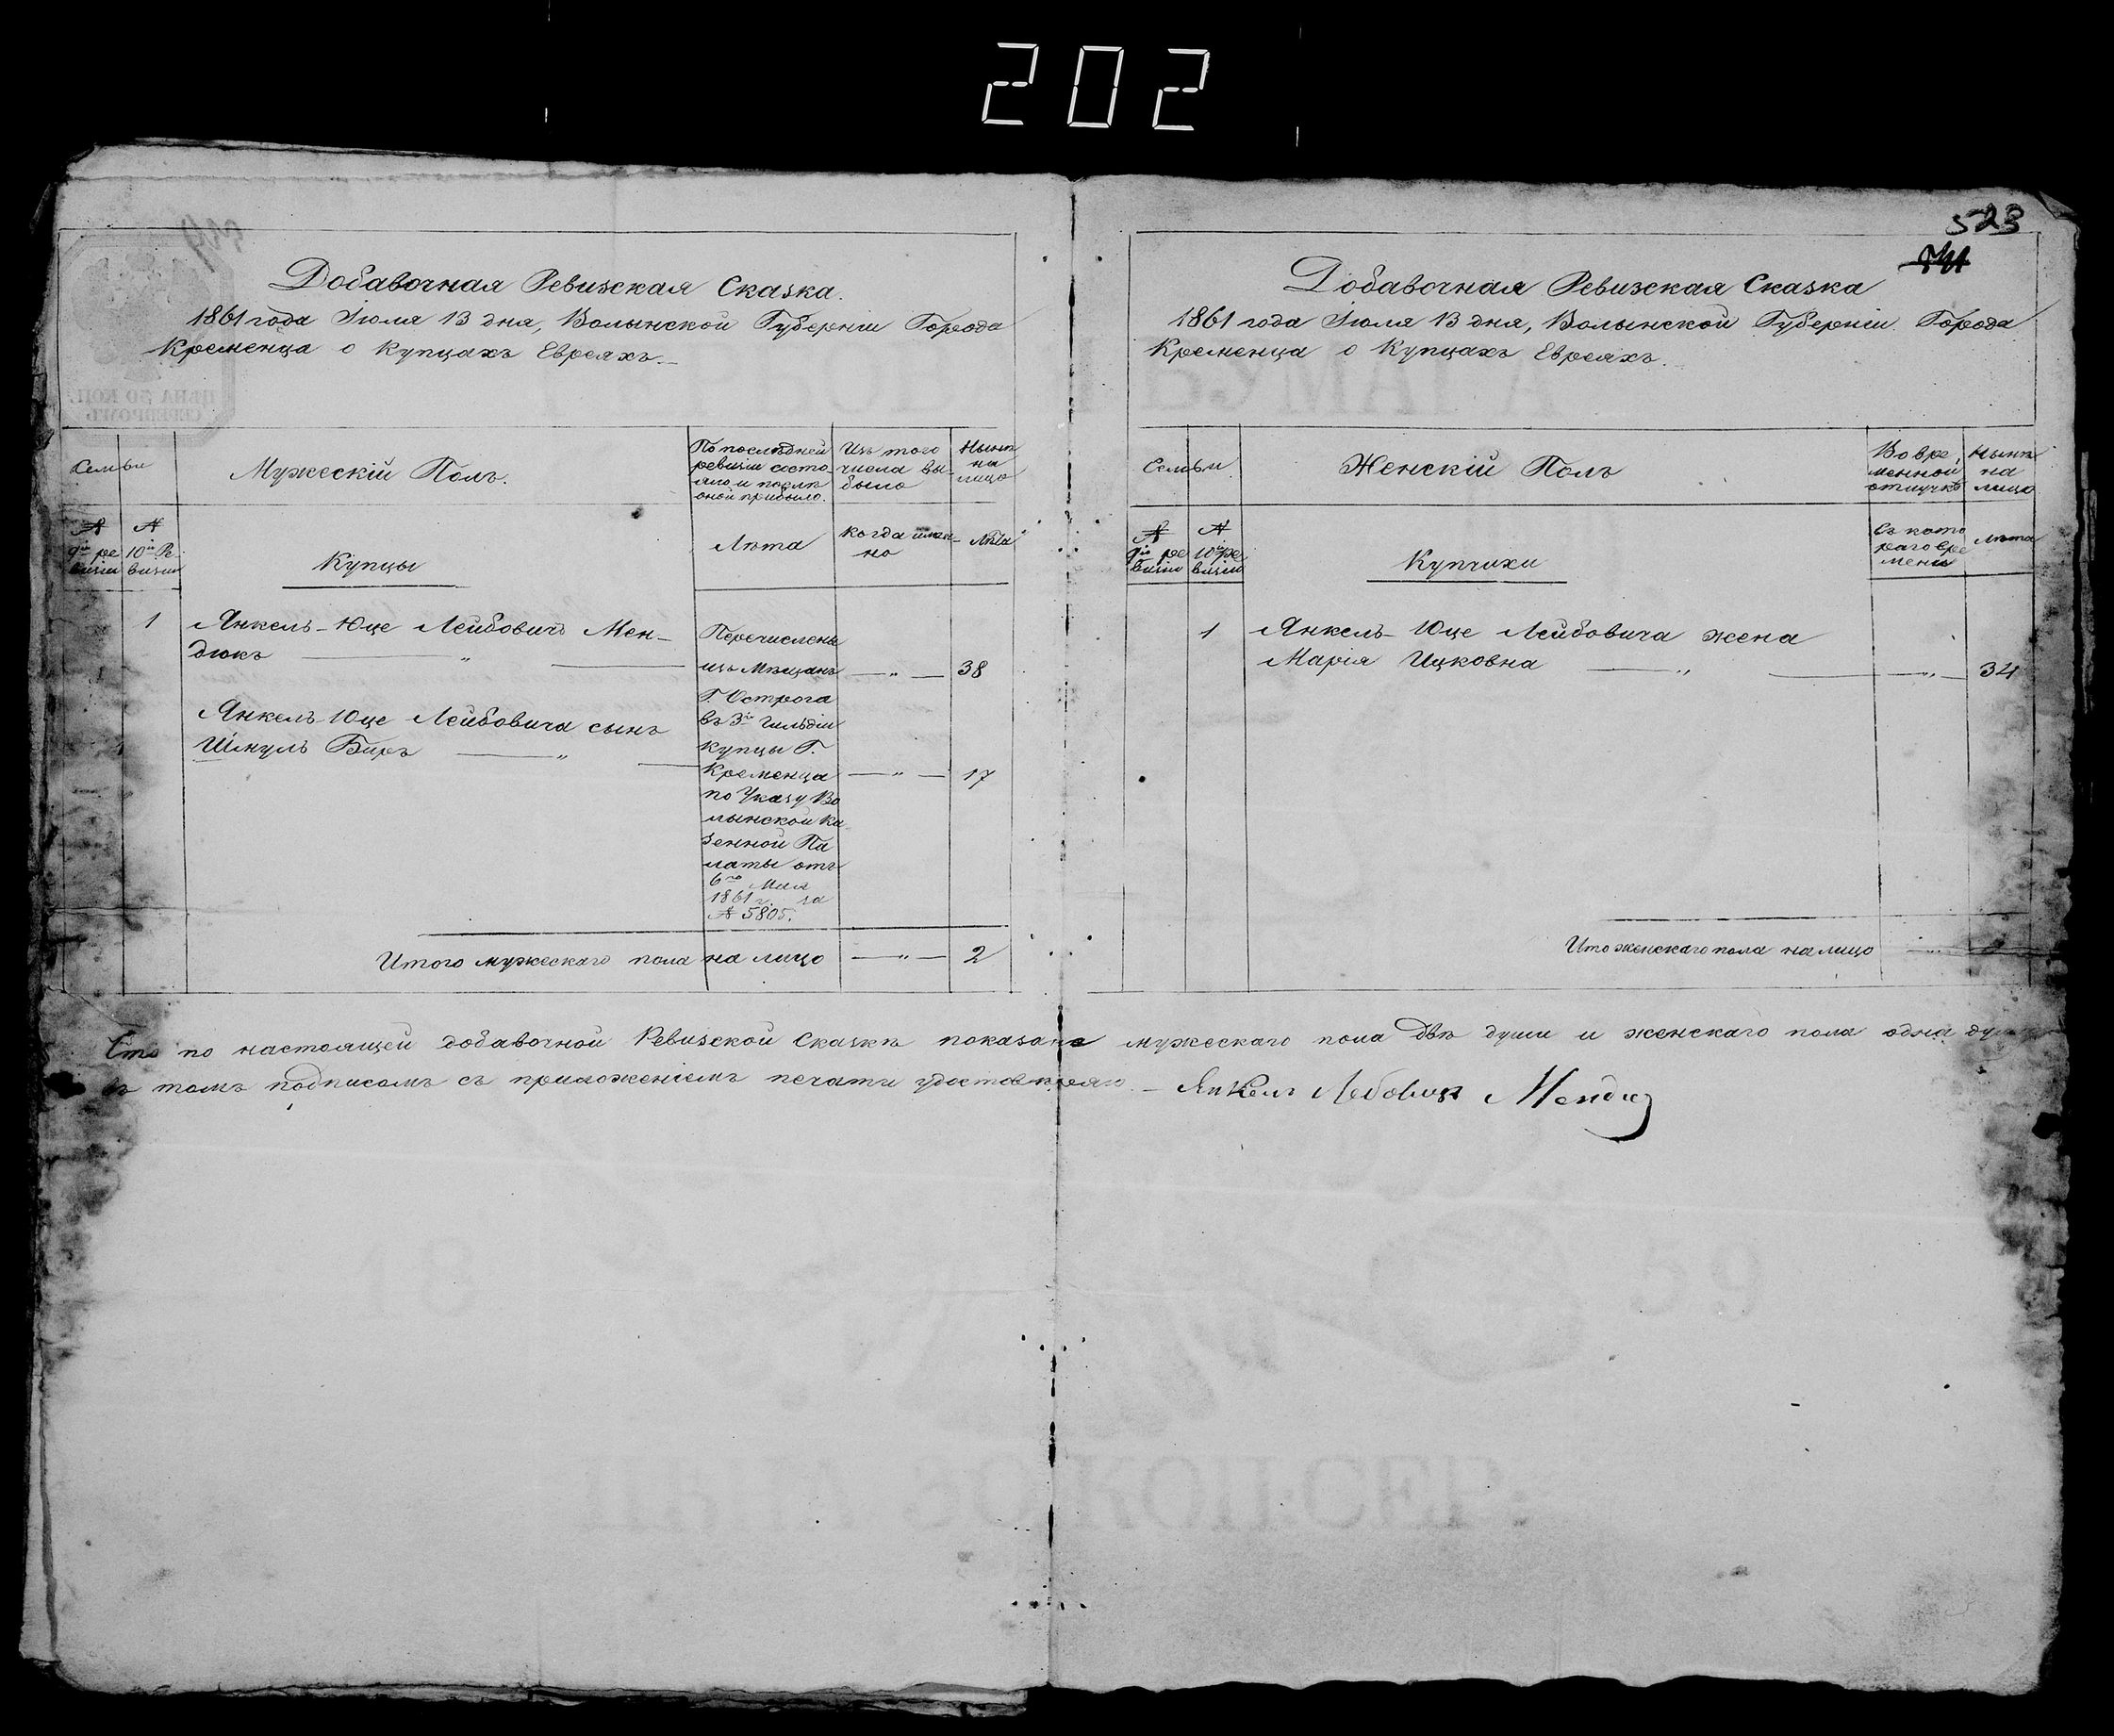 202
523
Добавочная Ревизская Сказка.
1861 года Іюля 13 дня, Волынской Губерніи Города
Кременца о Купцахъ Евреяхъ.
ЦѢНА 50 КОП.
СЕРЕБРОМЪ
Семьи
Мужескій Полъ.
По послѣдней
ревизіи состо-
яло и послѣ
оной прибыло.
Изъ того
числа вы-
было
Нынѣ
на
лицо
№
9й ре
визіи
№
10й Ре
визіи
Купцы
Лѣта
Когда имен-
но
Лѣта
1
Янкель-Юце Лейбовичъ Мен-
дюкъ — „ —
38
Янкель-Юце Лейбовича сынъ
Шмуль Беръ — „ —
17
Перечислены
изъ Мѣщанъ
Г. Острога
въ 3й Гильдіи
Купцы Г.
Кременца
по Указу Во
лынской Ка
зенной Па
латы отъ
6го Мая
1861 г. за
№ 5805.
Итого мужескаго пола на лицо — „ — 2
Добавочная Ревизская Сказка
1861 года Іюля 13 дня, Волынской Губерніи Города
Кременца о Купцахъ Евреяхъ.
Семьи
Женскій Полъ
Во вре
менной
отлучкѣ
Нынѣ
на
лицо
№
9й ре
визіи
№
10й ре
визіи
Купчихи
Съ кото
раго вре
мени
Лѣта
1
Янкель-Юце Лейбовича жена
Марія Ицковна — „ — — „ — 34
Итого женскаго пола на лицо
Что по настоящей добавочной Ревизской Сказкѣ показано мужескаго пола двѣ души и женскаго пола одна душа
въ томъ подписомъ съ приложеніемъ печати удостовѣряю. — Янкель Лебовичъ